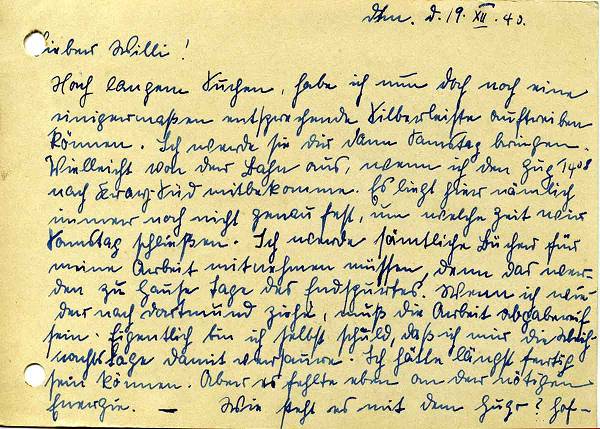 Dtm. d. 19. XII. 40.
Lieber Willi!
Nach langem Suchen, habe ich nun doch noch eine
einigermaßen entsprechende Silberleiste auftreiben
können. Ich werde sie dir dann Samstag bringen.
Vielleicht von der Bahn aus, wenn ich den Zug 1408
nach Kray-Süd mitbekomme. Es liegt hier nämlich
immer noch nicht genau fest, um welche Zeit wir
Samstag schließen. Ich werde sämtliche Bücher für
meine Arbeit mitnehmen müssen, denn das wer-
den zu Hause Tage des Endspurtes. Wenn ich wie-
der nach Dortmund ziehe, muß die Arbeit abgabereif
sein. Eigentlich bin ich selbst schuld, daß ich mir die Weih-
nachtstage damit versaure. Ich hätte längst fertig
sein können. Aber es fehlte eben an der nötigen
Energie. — Wie steht es mit dem ? Hof-